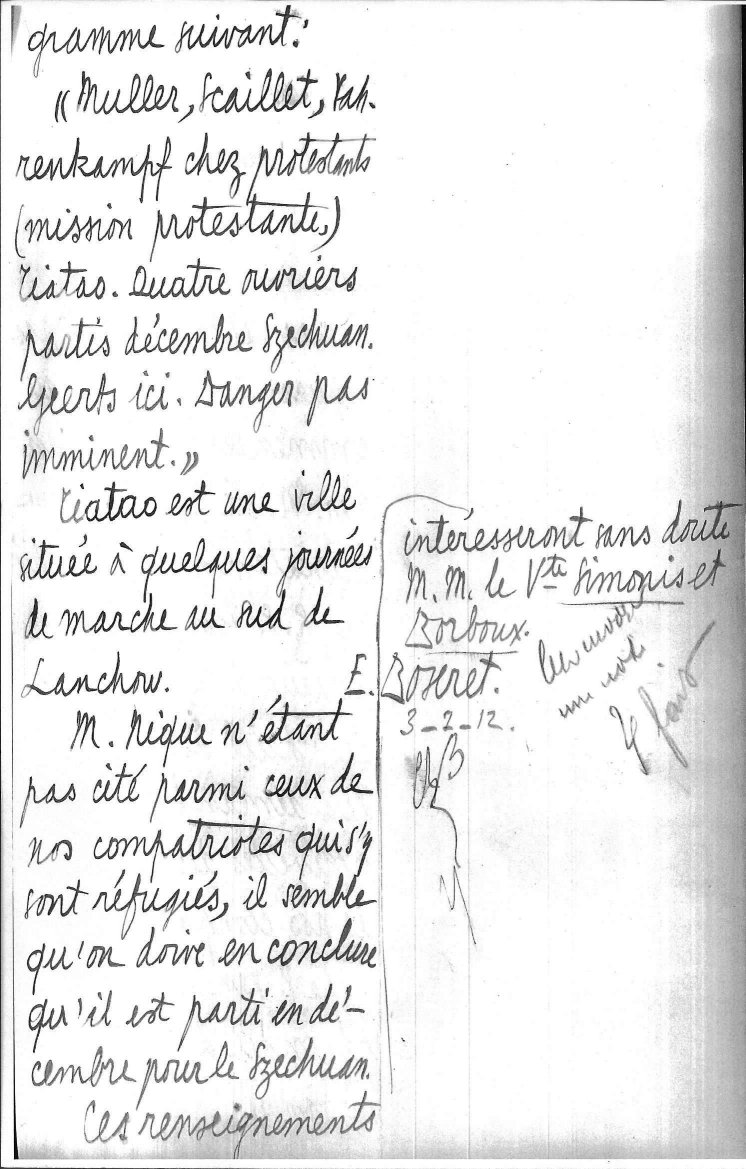 gramme suivant:
« Muller, Scaillet, Vah-
renkampf chez protestants
(mission protestante,)
Titao. Quatre ouvriers
partis décembre Szechuan.
Geerts ici. Danger pas
imminent. »
Titao est une ville
située à quelques journées
de marche au sud de
Lanchow.
M. Nique n'étant
pas cité parmi ceux de
nos compatriotes qui s'y
sont réfugiés, il semble
qu'on doive en conclure
qu'il est parti en dé-
cembre pour le Szechuan.
Ces renseignements
intéresseront sans doute
M.M. le Vte Simonis et
Borboux.
E. Boseret.
3-2-12.
une note